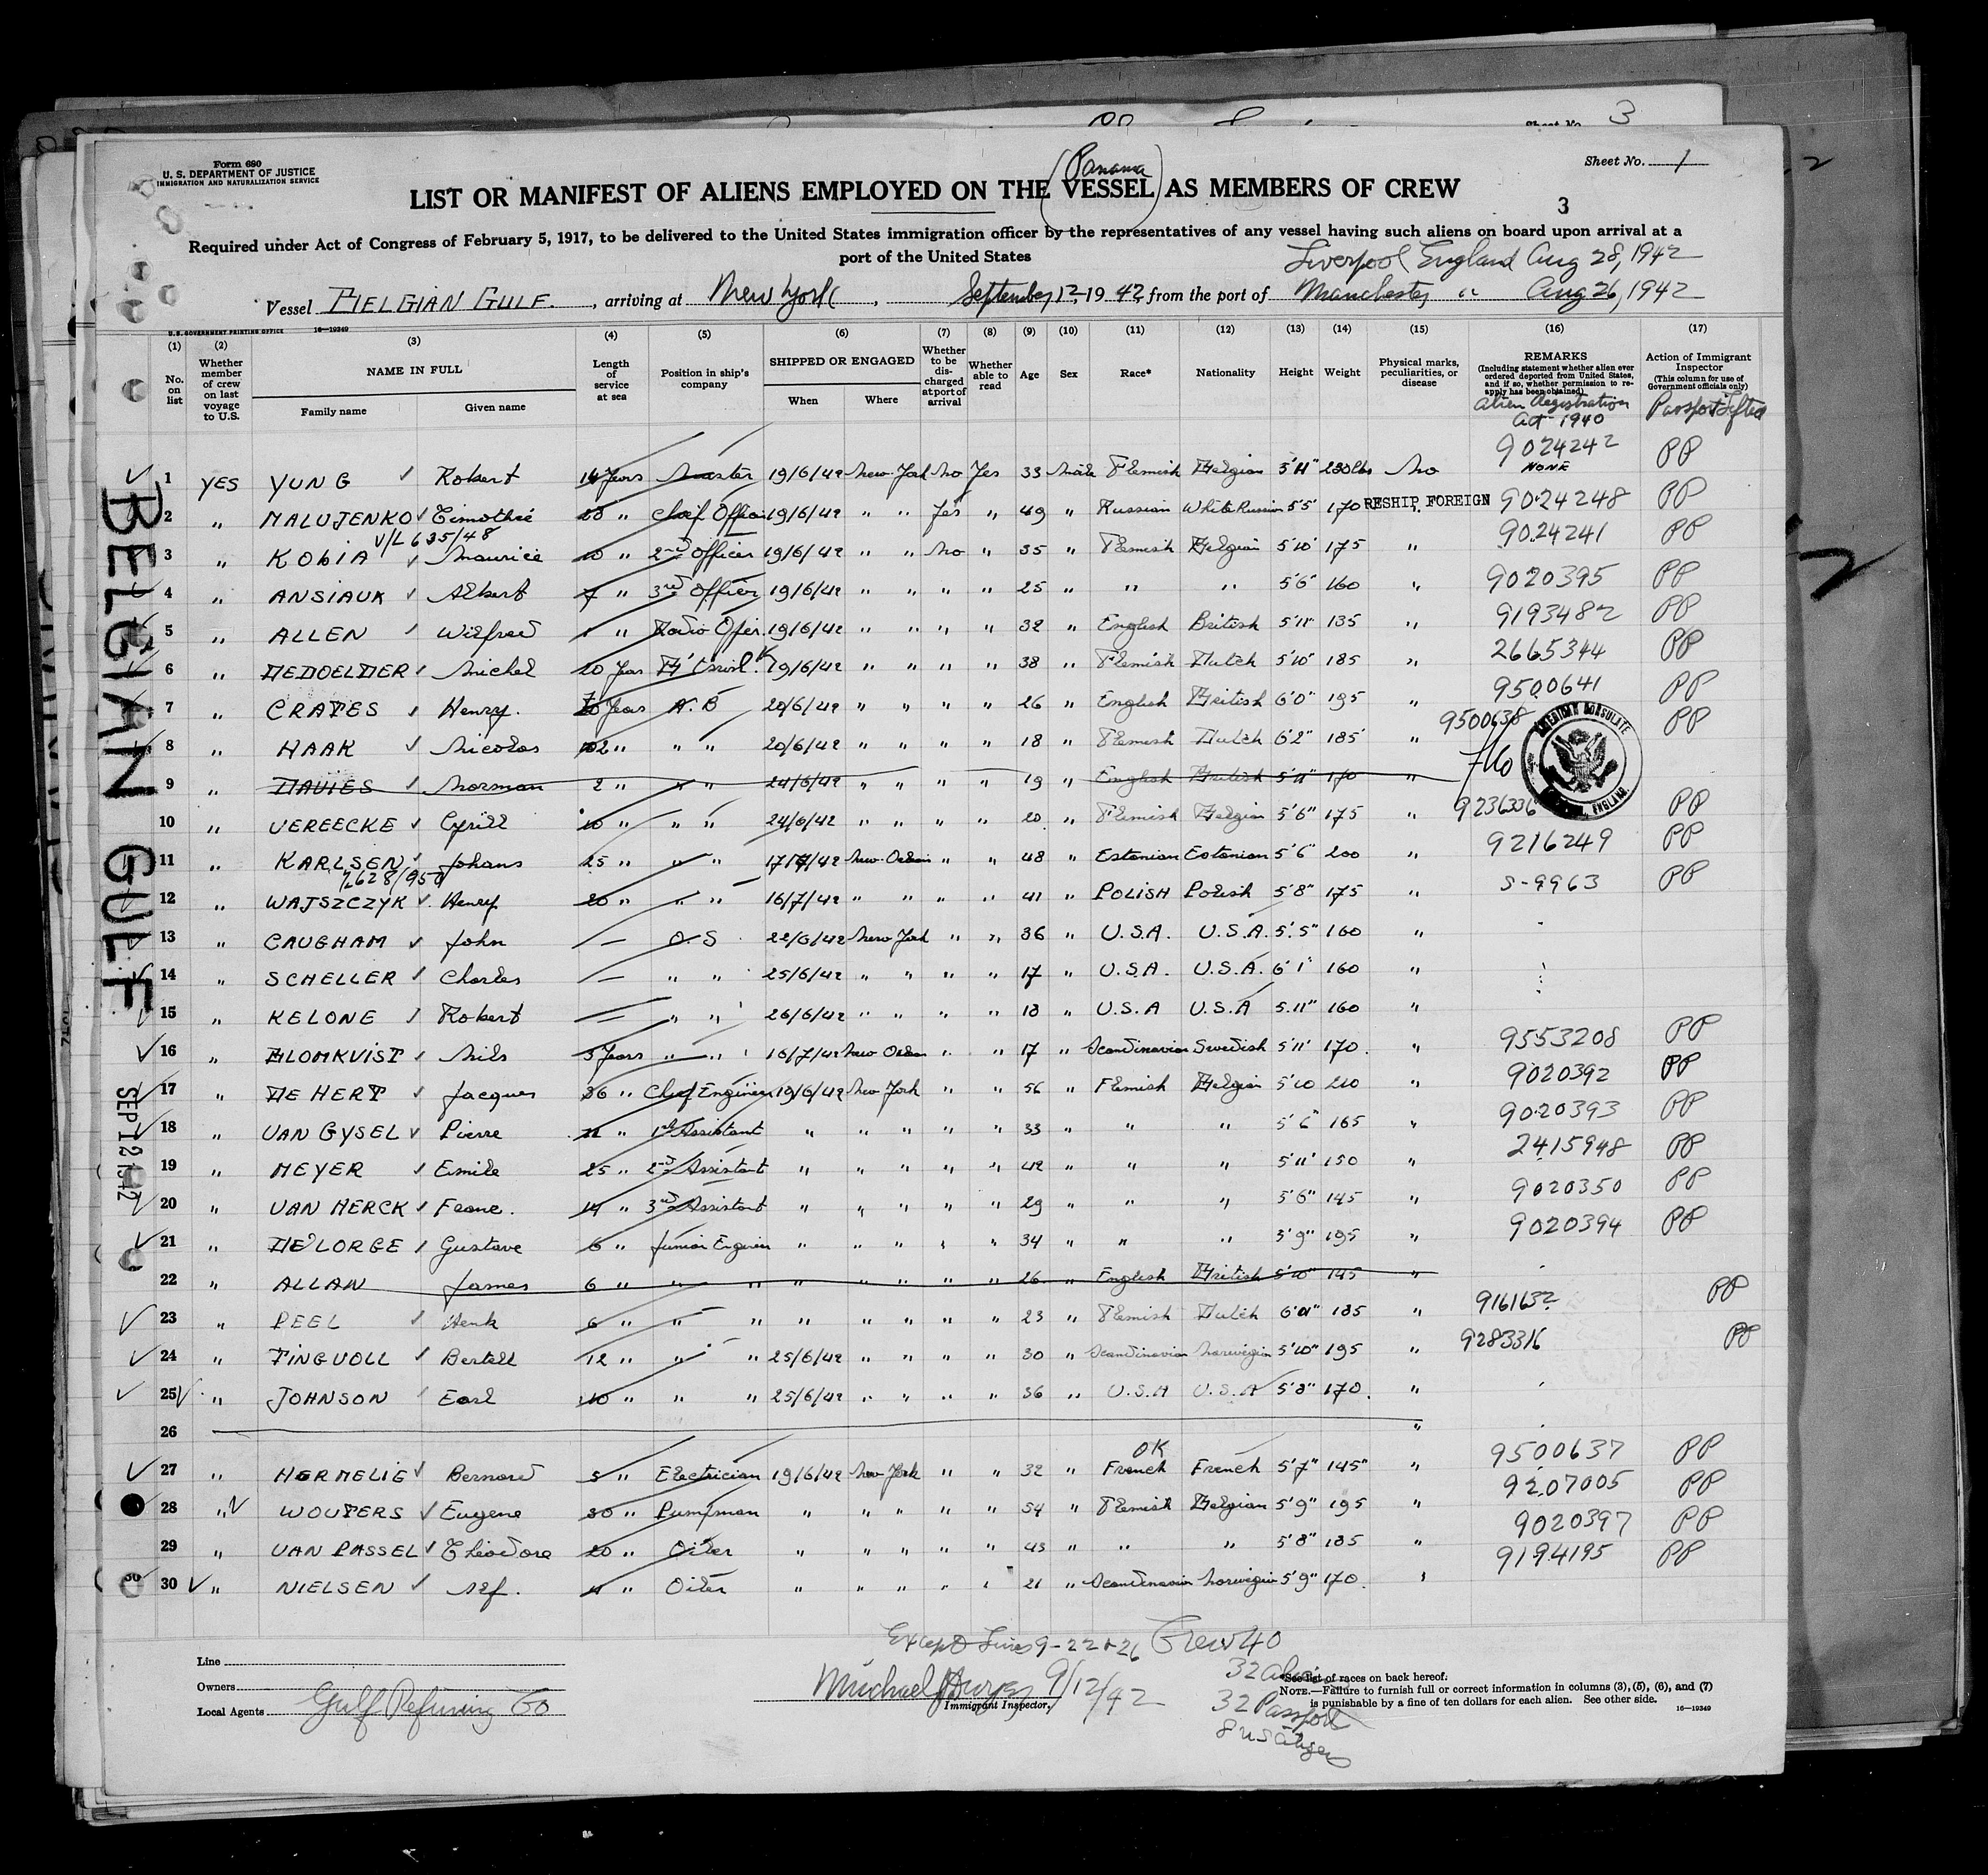 3
Sheet No.
Form 680
U. S. DEPARTMENT OF JUSTICE
IMMIGRATION AND NATURALIZATION SERVICE
Sheet No. 1
(Panama)
LIST OR MANIFEST OF ALIENS EMPLOYED ON THE VESSEL AS MEMBERS OF CREW
3
Required under Act of Congress of February 5, 1917, to be delivered to the United States immigration officer by the representatives of any vessel having such aliens on board upon arrival at a
port of the United States
Liverpool England Aug 28, 1942
Vessel BELGIAN GULF., arriving at New York, September 12, 1942, from the port of Manchester " Aug 26, 1942
U. S. GOVERNMENT PRINTING OFFICE 16—19349
(1) (2) (3) (4) (5) (6) (7) (8) (9) (10) (11) (12) (13) (14) (15) (16) (17)
No. on list
Whether member of crew on last voyage to U.S.
NAME IN FULL
Family name Given name
Length of service at sea
Position in ship's company
SHIPPED OR ENGAGED
When Where
Whether to be discharged at port of arrival
Whether able to read
Age
Sex
Race*
Nationality
Height
Weight
Physical marks, peculiarities, or disease
REMARKS
(Including statement whether alien ever ordered deported from United States, and if so, whether permission to reapply has been obtained)
Alien Registration Act-1940
Action of Immigrant Inspector
(This column for use of Government officials only)
Passport Lifted
1 YES YUNG Robert 14 Years Master 19/6/42 New-York No Yes 33 Male Flemish Belgian 5'11" 230 lbs No 9024242 NONE PP
2 " MALUJENKO Timothée 28 " Chief Officer 19/6/42 " " Yes " 49 " Russian White Russian 5'5" 170 RESHIP FOREIGN 9024248 PP
V/L 635/48
3 " KOBIA Maurice 10 " 2nd Officer 19/6/42 " " No " 35 " Flemish Belgian 5'10" 175 " 9024241 PP
4 " ANSIAUX Albert 7 " 3rd Officer 19/6/42 " " " " 25 " " " 5'6" 160 " 9020395 PP
5 " ALLEN Wilfred " Radio Ofer. 19/6/42 " " " " 32 " English British 5'11" 135 " 9193482 PP
6 " DEDOELDER Michel 20 Years 19/6/42 " " " " 38 " Flemish Dutch 5'10" 185 " 2665344 PP
7 " CRATES Henry. Years A. B 20/6/42 " " " " 26 " English British 6'0" 195 " 9500641 PP
8 " HAAK Nicolas 2 " " " 20/6/42 " " " " 18 " Flemish Dutch 6'2" 185 " 9500638 PP
9 " DAVIES Norman 2 " " " 24/6/42 " " " " 19 " English British 5'11" 170 "
AMERICAN CONSULATE
ENGLAND
10 " VEREECKE Cyrill 10 " " " 24/6/42 " " " " 20 " Flemish Belgian 5'6" 175 " 9236336 PP
11 " KARLSEN Johans 25 " " " 17/7/42 New-Orleans " " 48 " Estonian Estonian 5'6" 200 " 9216249 PP
12 " WAJSZCZYK Henry 20 " " " 16/7/42 " " " " 41 " POLISH Polish 5'8" 175 " S-9963 PP
13 " CAUGHAM John — O. S 22/6/42 New York " " 36 " U.S.A. U.S.A. 5'5" 160 "
14 " SCHELLER Charles — " " 25/6/42 " " " " 17 " U.S.A. U.S.A. 6'1" 160 "
15 " KELONE Robert — " " 26/6/42 " " " " 18 " U.S.A U.S.A 5'11" 160 "
16 " BLOMKVIST Nils 3 Years " " 16/7/42 New Orlean " " 17 " Scandinavian Swedish 5'11" 170. " 9553208 PP
17 " DE HERT Jacques 36 " Chief Engineer 19/6/42 New York " " 56 " Flemish Belgian 5'10 210 " 9020392 PP
18 " VAN GYSEL Pierre 11 " 1st Assistant " " " " " 33 " " " 5'6" 165 " 9020393 PP
19 " MEYER Emile 25 " 2nd Assistant " " " " " 42 " " " 5'11" 150 " 2415948 PP
20 " VAN MERCK 14 " 3rd Assistant " " " " " 29 " " " 5'6" 145 " 9020350 PP
21 " DELORGE Gustave 6 " Junior Engineer " " " " " 34 " " " 5'9" 195 " 9020394 PP
22 " ALLAN James 6 " " " " " " " " 26 " English British 5'10" 145 "
23 " PEEL Henk 6 " " " " " " " " 23 " Flemish Dutch 185 " 9161632 PP
24 " TINGVOLL Bertell 12 " " " 25/6/42 " " " " 30 " Scandinavian Norwegian 5'10" 195 " 9283316 PP
25 " JOHNSON Earl 10 " " " 25/6/42 " " " " 36 " U.S.A U.S.A 5'8" 170. "
26 "
OK
27 " HERMELIE Bernard 5 " Electrician 19/6/42 New York " " 32 " French French 5'7" 145" " 9500637 PP
28 " WOUTERS Eugene 30 " Pumpman " " " " " 54 " Flemish Belgian 5'9" 195 " 9207005 PP
29 " VAN PASSEL Théodore 20 " Oiler " " " " " 43 " " " 5'8" 185 " 9020397 PP
30 " NIELSEN Alf. 4 " Oiler " " " " " 21 " Scandinavian Norwegian 5'9" 170. " 9194195 PP
BELGIAN GULF
SEP 12 1942
Except Lines 9-22 & 26 Crew 40
Line
Owners
Local Agents Gulf Refining Co
Michael 9/12/42
Immigrant Inspector.
32 aliens
32 Passport
8 US Citizens
*See list of races on back hereof.
NOTE.—Failure to furnish full or correct information in columns (3), (5), (6), and (7)
is punishable by a fine of ten dollars for each alien. See other side.
16—19349